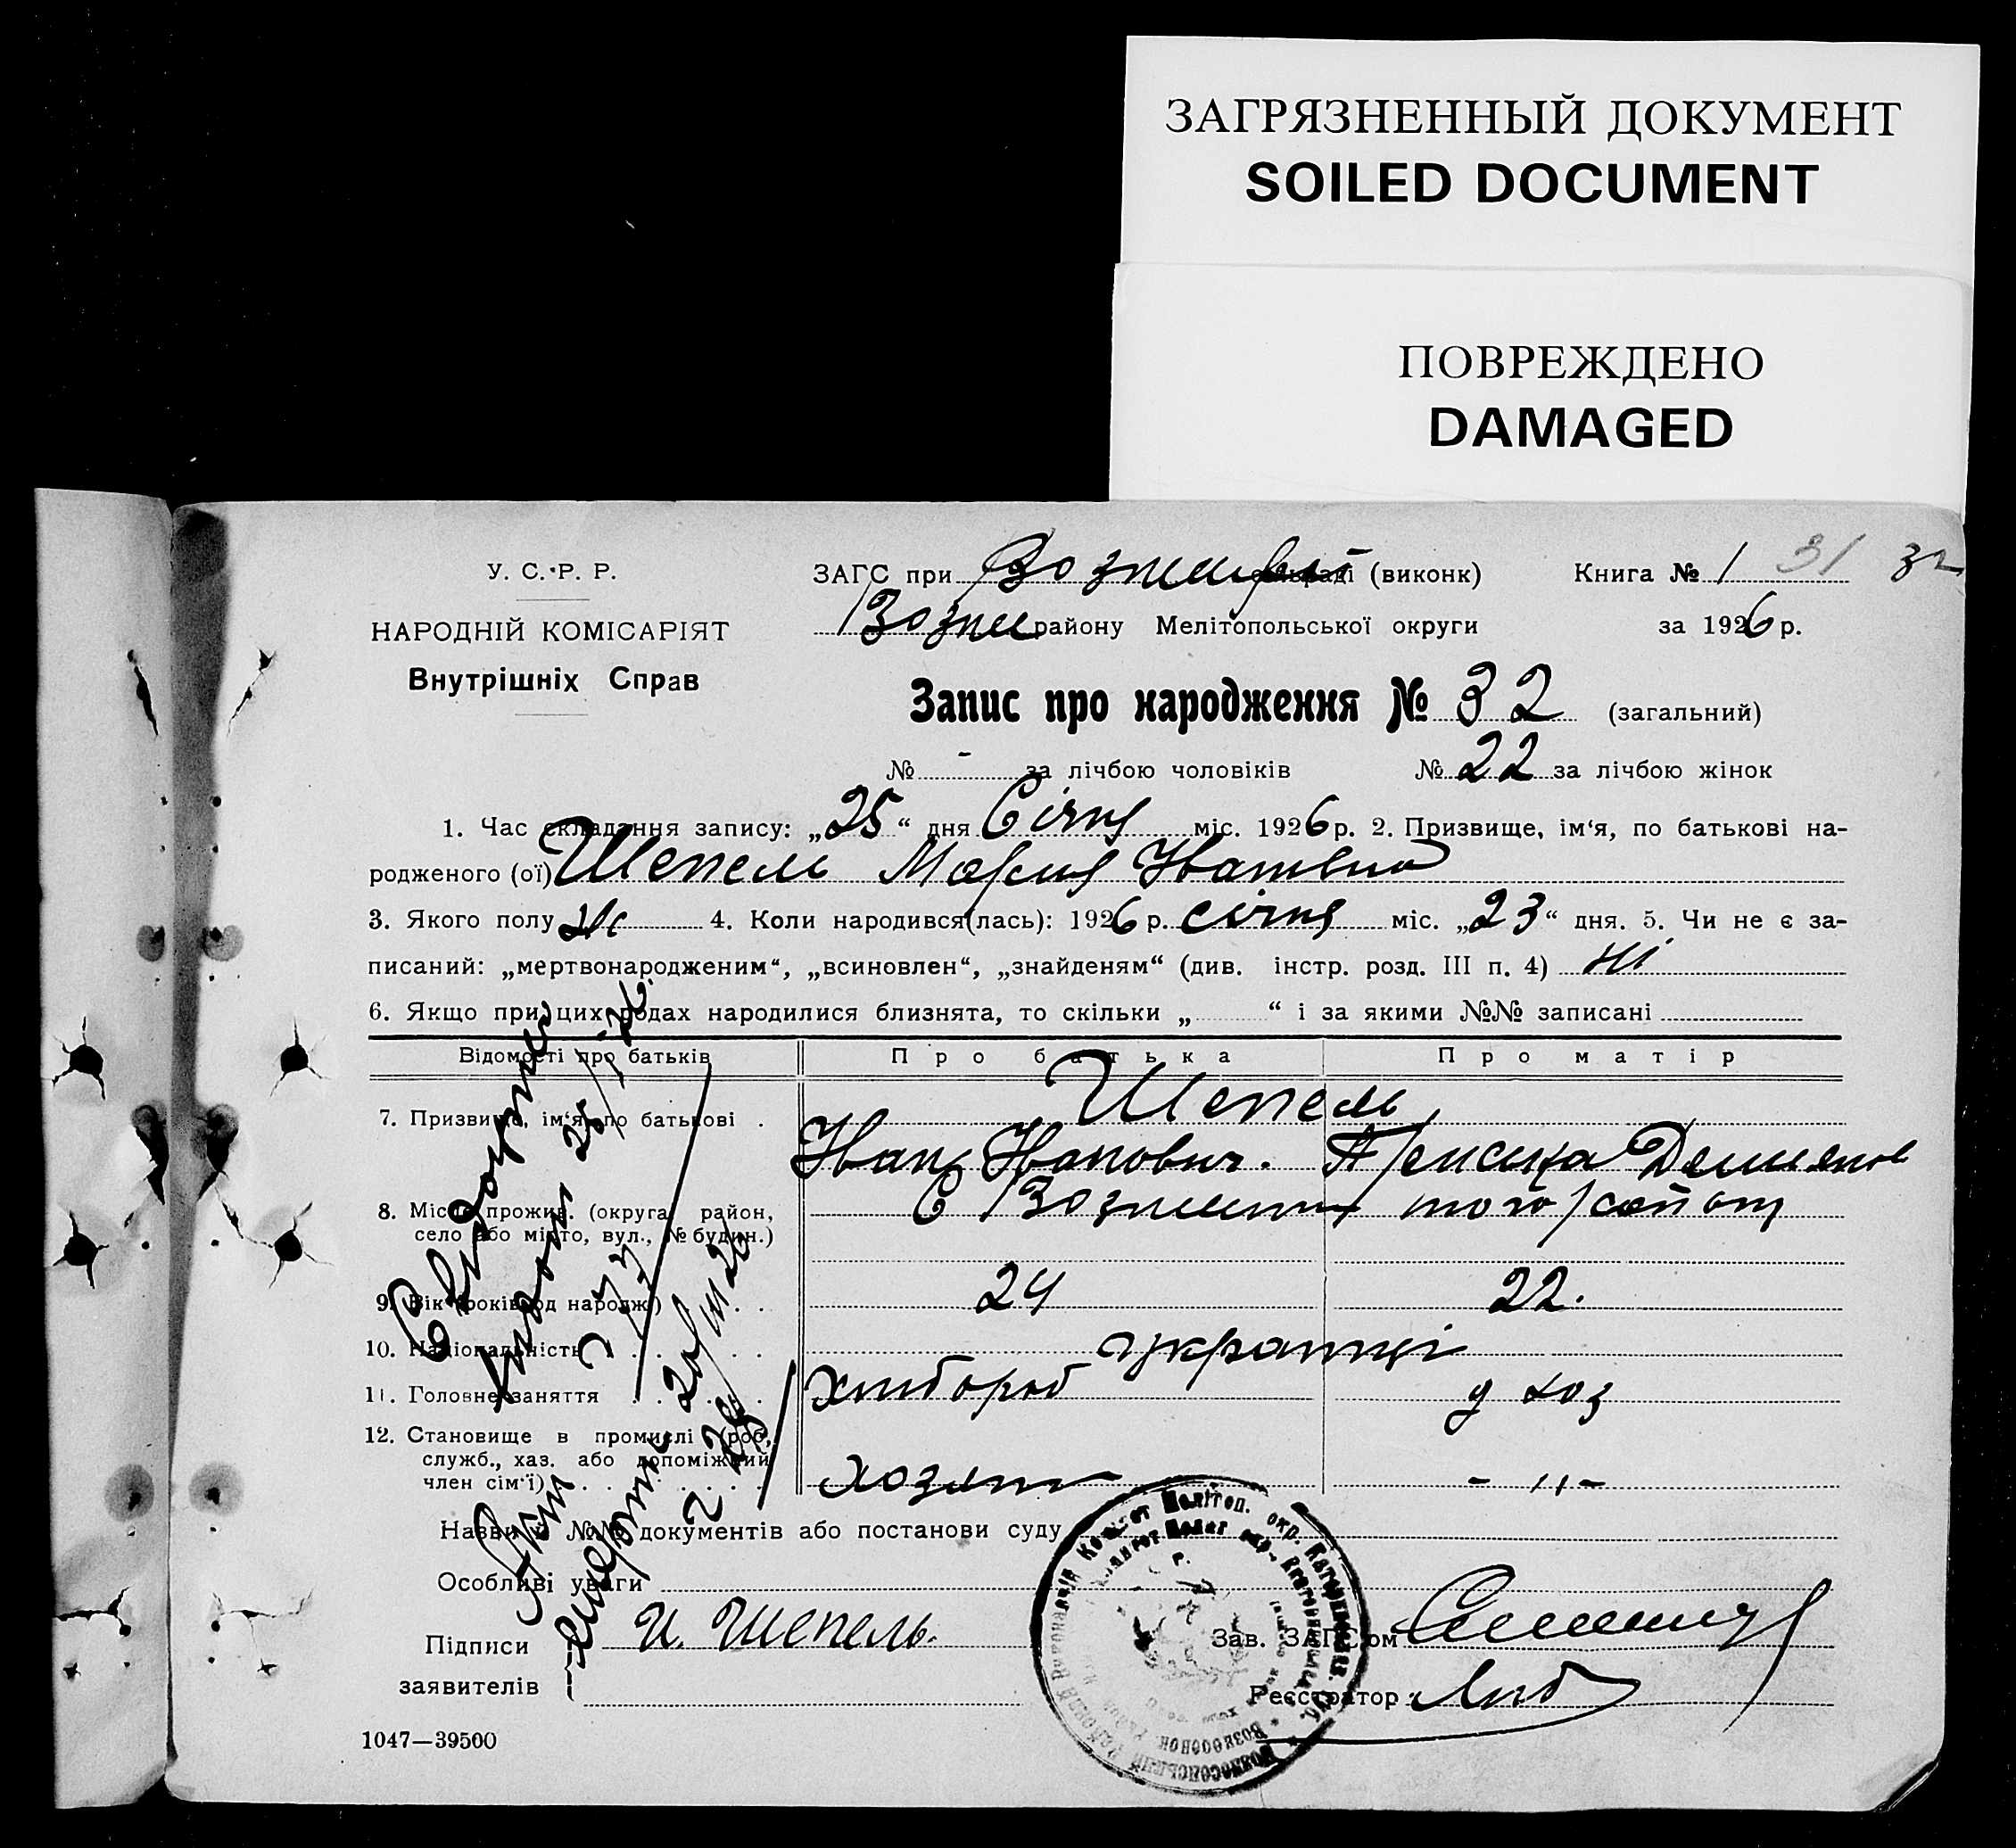 ЗАГРЯЗНЕННЫЙ ДОКУМЕНТ
SOILED DOCUMENT
ПОВРЕЖДЕНО
DAMAGED
У. С. Р. Р.
НАРОДНІЙ КОМІСАРІЯТ
Внутрішніх Справ
ЗАГС при (виконк) Книга № 1 31 32
району Мелітопольської округи за 1926 р.
Запис про народження № 32 (загальний)
№ - за лічбою чоловіків № 22 за лічбою жінок
1. Час складання запису: „25“ дня Січня міс. 1926 р. 2. Призвище, ім‘я, по батькові на-
родженого (ої) Шепель Мария Ивановна
3. Якого полу ж 4. Коли народився(лась): 1926 р. січня міс. „23“ дня. 5. Чи не є за-
писаний: „мертвонародженим“, „всиновлен“, „знайденям“ (див. інстр. розд. III п. 4) ні
6. Якщо при цих родах народилися близнята, то скільки „ “ і за якими №№ записані
Відомості про батьків Про батька Про матір
7. Призвище, ім‘я, по батькові . Шепель
Иван Иванович.
8. Місце прожив. (округа, район, С
село або місто, вул., № будин.)
9. Вік (років од народж.) . . 24 22.
10. Національність . . . українці
11. Головне заняття . . . хлібороб д хоз
12. Становище в промислі (роб.,
служб., хаз. або допоміжний
член сім‘ї) . . . хозяин - ,, -
Назви й №№ документів або постанови суду
Особливі уваги
Підписи И. Шепель. Зав. ЗАГС‘ом
заявителів Реєстратор
1047—39500